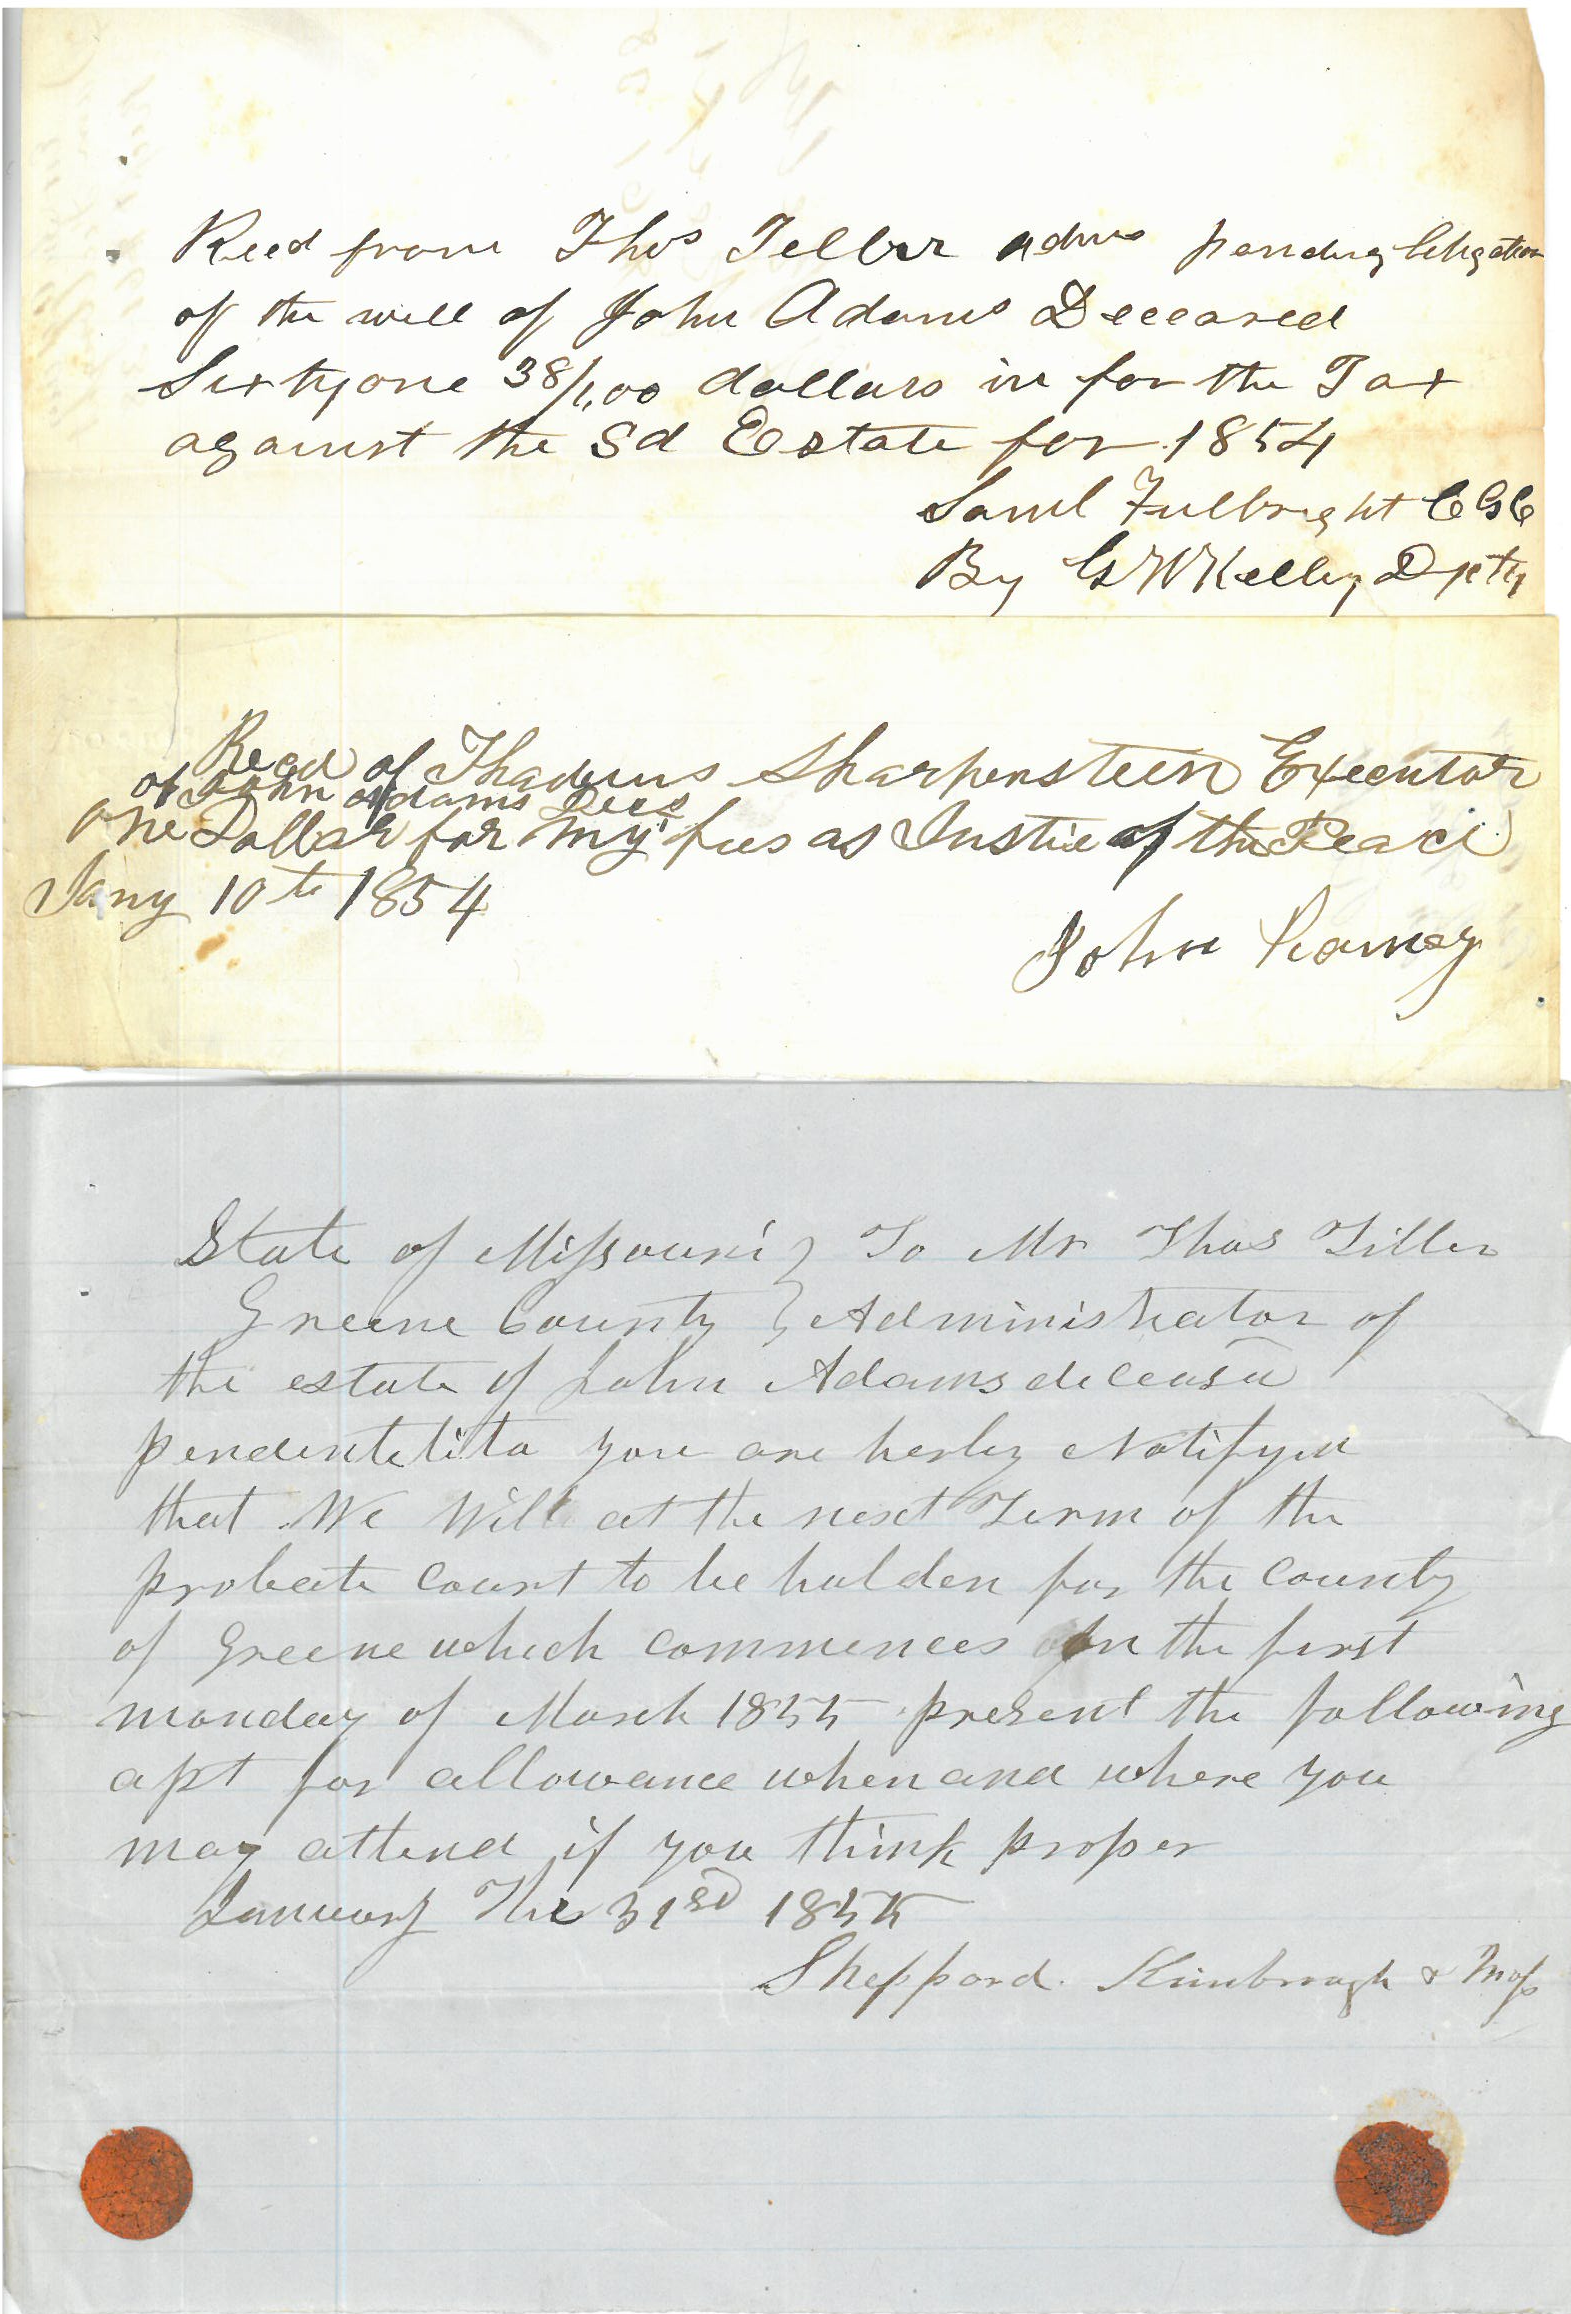 Recd from Thos Teller adms pending litigation
of the will of John Adams Deceased
Sixtyone 38/1,00 dollars in for the Tax
against the Sd Estate for 1854
Saml Fulbright CGC
By GW Kelley Dpty
Recd of Thadeus Sharpensteen Executor
of John Adams Decd
One Dollar for my fees as Justice of the Peace
Jany 10th 1854
John Ramey
State of Missouri } To Mr Thos Tiller
Greene County } Administrator of
the estate of John Adams deceasd
pendentelita you are herby Notifyed
that We Will at the next Term of the
probate Court to be holden for the County
of Greene which commences on the first
monday of March 1855 present the following
apt for allowance when and where you
may attend if you think proper
January The 31sd 1855
Sheppard Kimbrough & Moss